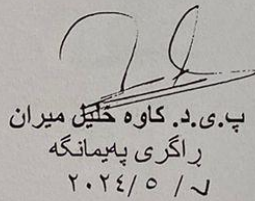 پ.ی.د. کاوە خلیل میران
ڕاگری پەیمانگە
٢٠٢٤/ ٥ / ٧